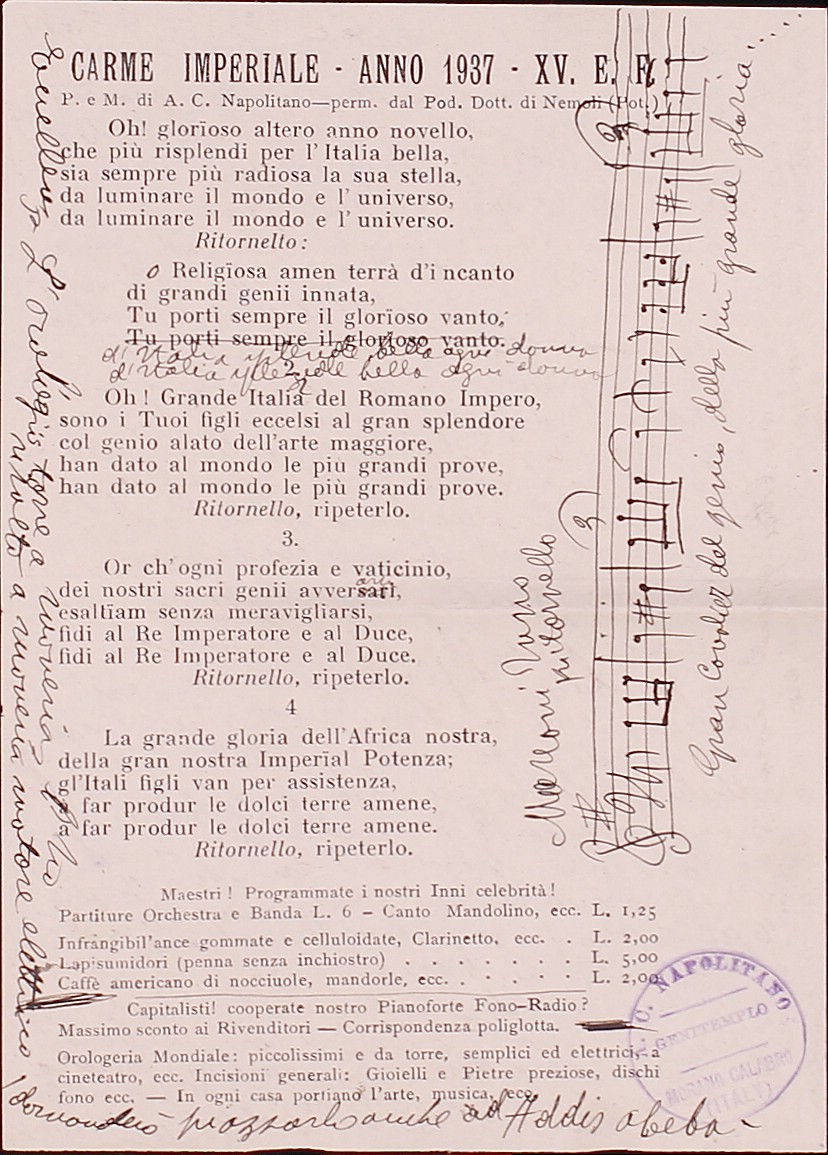 CARME IMPERIALE - ANNO 1937 - XV. E. F.
P. e M. di A. C. Napolitano—perm. dal Pod. Dott. di Nemoli (Pot.)
Oh! glorïoso altero anno novello,
che più risplendi per l'Italia bella,
sia sempre più radiosa la sua stella,
da luminare il mondo e l'universo,
da luminare il mondo e l'universo.
Ritornelto:
o Religïosa amen terrà d'i ncanto
di grandi genii innata,
Tu porti sempre il glorïoso vanto,
Tu porti sempre il glorïoso vanto.
d'Italia splende bella ogni donna
d'Italia splende bella ogni donna
2
Oh! Grande Italia del Romano Impero,
sono i Tuoi figli eccelsi al gran splendore
col genio alato dell'arte maggiore,
han dato al mondo le piu grandi prove,
han dato al mondo le più grandi prove.
Ritornello, ripeterlo.
3.
Or ch'ogni profezia e vaticinio,
dei nostri sacri genii avversari,
esaltïam senza meravigliarsi,
fidi al Re Imperatore e al Duce,
fidi al Re Imperatore e al Duce.
Ritornello, ripeterlo.
4
La grande gloria dell'Africa nostra,
della gran nostra Imperïal Potenza;
gl'Itali figli van per assistenza,
a far produr le dolci terre amene,
a far produr le dolci terre amene.
Ritornello, ripeterlo.
Maestri! Programmate i nostri Inni celebrità!
Partiture Orchestra e Banda L. 6 – Canto Mandolino, ecc. L. 1,25
Infrangibil'ance gommate e celluloidate, Clarinetto, ecc. . L. 2,00
Lapisumidori (penna senza inchiostro) . . . . . . . L. 5,00
Caffè americano di nocciuole, mandorle, ecc. . . . . . L. 2,00
Capitalisti! cooperate nostro Pianoforte Fono-Radio?
Massimo sconto ai Rivenditori — Corrispondenza poliglotta.
Orologeria Mondiale: piccolissimi e da torre, semplici ed elettrici, a
cineteatro, ecc. Incisioni generali: Gioielli e Pietre preziose, dischi
fono ecc. — In ogni casa portiano l'arte, musica, ecc.
piazzarlo anche ad Addis abeba -
L'orologio torre a
a motore elettrico,
Marconi
ritornello
Gran Cavalier del genio, della più grande gloria....
3
3
C. NAPOLITANO
GENITEMPLO
MORANO CALABRO
(ITALY)